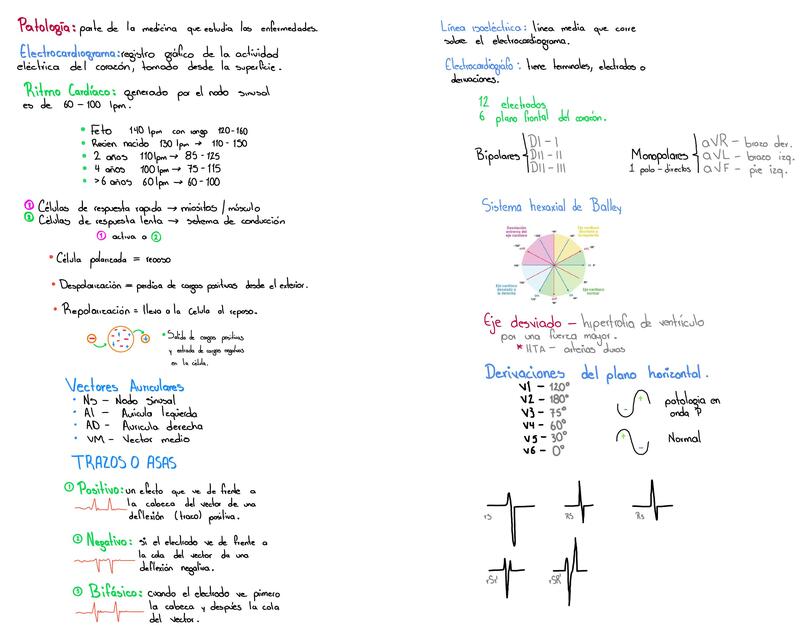 Patología: parte de la medicina que estudia las enfermedades.
Electrocardiograma: registro gráfico de la actividad
eléctrica del corazón, tomado desde la superficie.
Ritmo Cardíaco: generado por el nodo sinusal
es de 60-100 lpm.
• Feto 140 lpm con rango 120-160
• Recien nacido 130 lpm → 110-150
• 2 años 110 lpm → 85-125
• 4 años 100 lpm → 75-115
• >6 años 60 lpm → 60-100
① Células de respuesta rapida → miositos / músculo
② Células de respuesta lenta → sistema de conducción
① activa a ②
• Célula polarizada = reposo
• Despolarización = perdida de cargas positivas desde el exterior.
• Repolarización = lleva a la celula al reposo.
• Salida de cargas positivas
y entrada de cargas negativas
en la célula.
Vectores Auriculares
• NS - Nodo sinusal
• AI - Auricula Izquierda
• AD - Auricula derecha
• VM - Vector medio
TRAZOS O ASAS
① Positivo: un efecto que ve de frente a
la cabeza del vector de una
deflexión (trazo) positiva.
② Negativo: si el electrodo ve de frente a
la cola del vector da una
deflexión negativa.
③ Bifásico: cuando el electrodo ve primero
la cabeza y después la cola
del vector.
Línea isoeléctrica: línea media que corre
sobre el electrocardiograma.
Electrocardiógrafo: tiene terminales, electrodos o
derivaciones.
12 electrodos
6 plano frontal del corazón.
Bipolares
DI - I
DII - II
DIII - III
Monopolares
1 polo - directos
aVR - brazo der.
aVL - brazo izq.
aVF - pie izq.
Sistema hexaxial de Bailey
Desviación
extrema del
eje cardíaco
Eje cardíaco
desviado a
la izquierda
Eje cardíaco
desviado a
la derecha
Eje cardíaco
normal
Eje desviado - hipertrofia de ventrículo
por una fuerza mayor.
* HTA - arterias duras
Derivaciones del plano horizontal.
V1 - 120°
V2 - 180°
V3 - 75°
V4 - 60°
V5 - 30°
V6 - 0°
patologia en
onda P
Normal
rS
RS
Rs
rSr'
rSR'